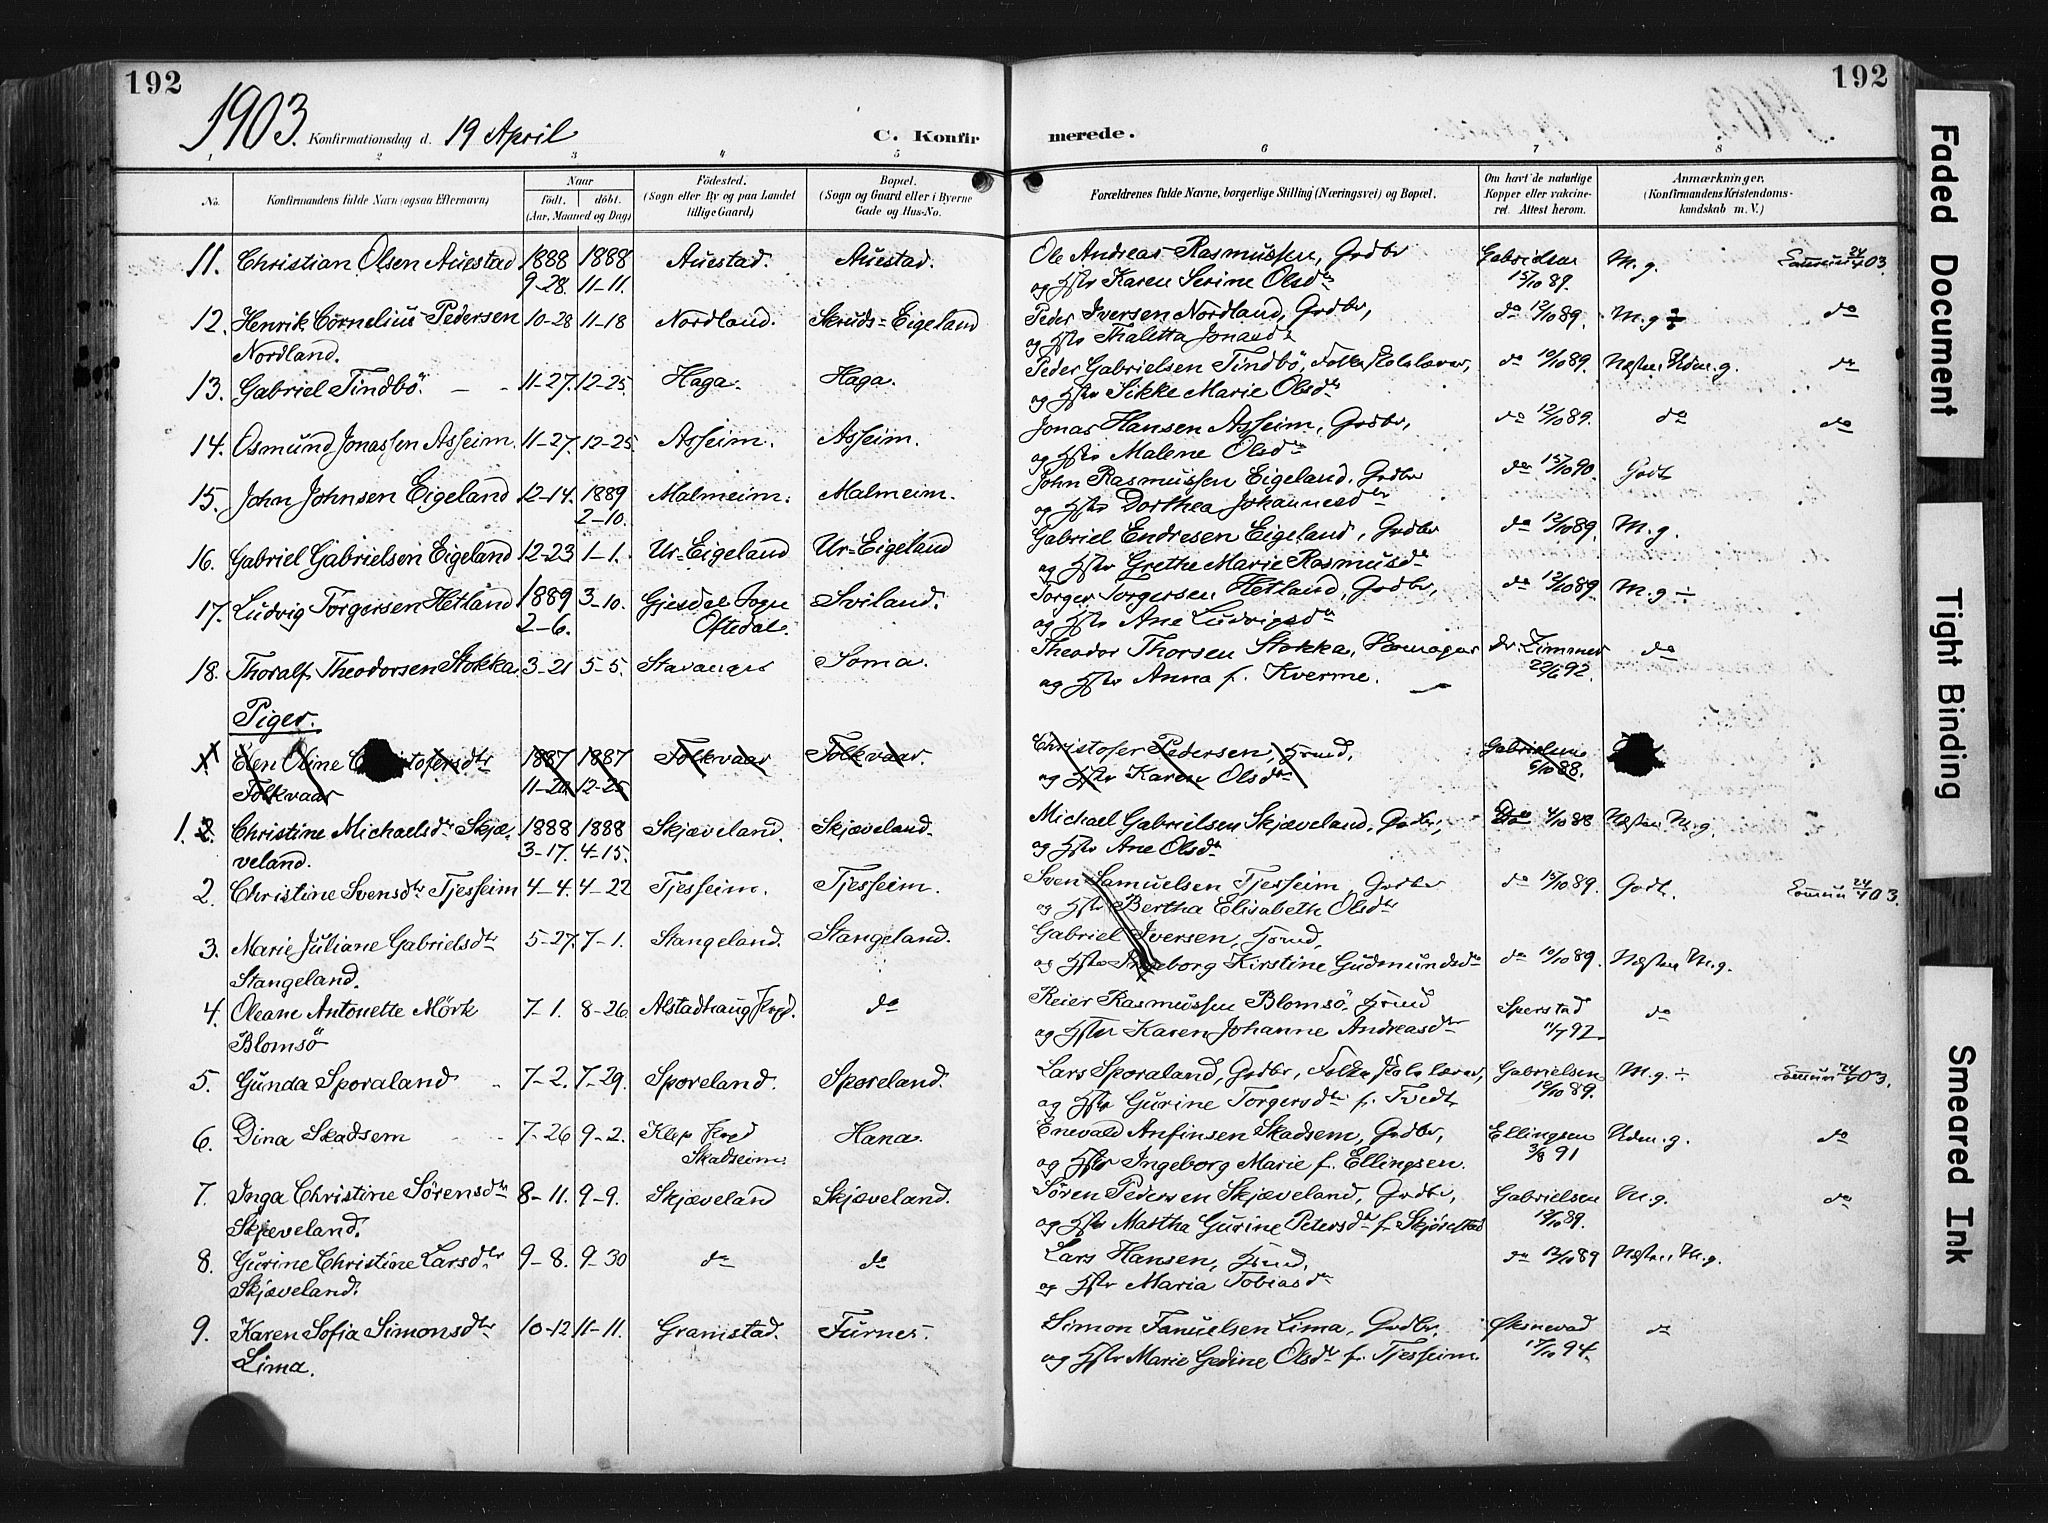 192
192
1903. Konfirmationsdag d. 19 April
C. Konfir
merede.
1 2 3 4 5 6 7 8
No.
Konfirmandens fulde Navn (ogsaa Efternavn)
Naar
født. døbt.
(Aar, Maaned og Dag)
Fødested.
(Sogn eller By og paa Landet
tillige Gaard)
Bopæl.
(Sogn og Gaard eller i Byerne
Gade og Hus-No.
Forældrenes fulde Navne, borgerlige Stilling (Næringsvei) og Bopæl.
Om havt de naturlige
Kopper eller vakcine-
ret. Attest herom.
Anmærkninger,
(Konfirmandens Kristendoms-
kundskab m. V.)
11. Christian Olsen Auestad 1888 1888 Auestad. Auestad. Ole Andreas Rasmussen, Grdbr Gabrielsen M.g. 24/4 03.
9-28. 11-11. og Hstr Karen Serine Olsdtr 15/10 89.
12. Henrik Cornelius Pedersen 10-28 11-18 Nordland. Skruds=Eigeland Peder Iversen Nordland, Grdbr, do 12/10 89. M.g ÷ do
Nordland. og Hstr Thaletta Jonasdtr
13. Gabriel Tindbö 11-27. 12-25. Haga. Haga. Peder Gabrielsen Tindbö, Folkeskolelærer, do 10/10 89. Næsten Udm.g. do
og Hstr Sikke Marie Olsdtr
14. Osmund Jonassen Asheim. 11-27. 12-25. Asheim. Asheim. Jonas Hansen Asheim, Grdbr, do 12/10 89. do do
og Hstr Malene Olsdtr
15. John Johnsen Eigeland 12-14. 1889 Malmeim. Malmeim. John Rasmussen Eigeland, Grdbr do 15/10 90. Godt
2-10. og Hstr Dorthea Johannesdtr
16. Gabriel Gabrielsen Eigeland 12-23 1-1. Ur=Eigeland Ur=Eigeland Gabriel Endresen Eigeland, Grdbr do 12/10 89. M.g.
og Hstr Grethe Marie Rasmusdtr
17. Ludvig Torgersen Hetland 1889 3-10. Gjesdal Sogn Sviland. Torger Torgersen Hetland, Grdbr, do 12/10 89. M.g ÷
2-6. Oftedal. og Hstr Ane Ludvigsdtr
18. Thoralf Theodorsen Stokka. 3-21 5-5. Stavanger Soma. Theodor Thorsen Stokka, dr. Zimmer do
og Hstr Anna f. Kverme. 22/6 92.
Piger.
Elen Oline 1887 1887 Folkvaar Folkvaar. Christofer Pedersen, Husmd, Gabrielsen
Folkvaar 11-20 12-25 og Hstr Karen Olsdtr 6/10 88.
1. 2. Christine Michaelsdtr Skjæ- 1888 1888 Skjæveland. Skjæveland. Michael Gabrielsen Skjæveland, Grdbr, Do 4/10 88 Næsten M.g.
veland. 3-17. 4-15. og Hstr Ane Olsdtr
2. Christine Svensdtr Tjessheim 4-4. 4-22 Tjessheim. Tjessheim. Sven Samuelsen Tjessheim, Grdbr do 15/10 89. Godt. 24/4 03.
og Hstr Bertha Elisabeth Olsdtr
3. Marie Juliane Gabrielsdtr 5-27. 7-1. Stangeland. Stangeland. Gabriel Iversen, Husmd,
Stangeland. og Hstr Ingeborg Kirstine Gudmundsdtr do 10/10 89. Næsten M.g.
4. Oleane Antonette Mörk 7-1. 8-26. Alstadhaug Prgd. do Reier Rasmussen Blomsö, Husmd Sperstad do
Blomsö og Hstr Karen Johanne Andreasdtr 11/7 92.
5. Gunda Sporaland 7-2. 7-29. Sporeland. Sporeland. Lars Sporaland, Grdbr, Folkeskolelærer, Gabrielsen M.g. ÷ 24/4 03.
og Hstr Gurine Torgersdtr f. Tvedt 10/10 89.
6. Dina Skadsem 7-26 9-2. Klep Prgd Hana. Enevald Anfinsen Skadsem, Grdbr, Ellingsen Udm.g. do
Skadseim. og Hstr Ingeborg Marie f. Ellingsen. 3/8 91
7. Inga Christine Sörensdtr 8-11. 9-9. Skjæveland Skjæveland. Sören Pedersen Skjæveland, Grdbr, Gabrielsen M.g. do
Skjæveland. og Hstr Martha Gurine Petersdtr f. Skjörestad 12/10 89.
8. Gurine Christine Larsdtr 9-8. 9-30 do do Lars Hansen, Husmd, do 12/10 89 Næsten M.g.
Skjæveland. og Hstr Maria Tobiasdtr
9. Karen Sofia Simonsdtr 10-12 11-11. Gramstad. Furnes. Simon Fanuelsen Lima, Grdbr. Øksnevad do
Lima. og Hstr Marie Gedine Olsdtr f. Tjessheim. 17/10 94.
Faded Document
Tight Binding
Smeared Ink